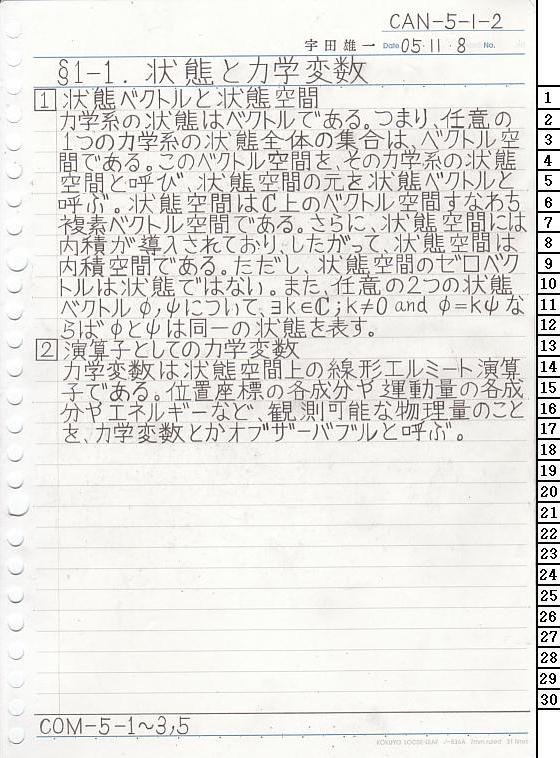 CAN-5-1-2
宇田雄一 Date 05・11・8 No.
§1-1. 状態と力学変数
1 状態ベクトルと状態空間
力学系の状態はベクトルである。つまり、任意の
1つの力学系の状態全体の集合は、ベクトル空
間である。このベクトル空間を、その力学系の状態
空間と呼び、状態空間の元を状態ベクトルと
呼ぶ。状態空間はℂ上のベクトル空間すなわち
複素ベクトル空間である。さらに、状態空間には
内積が導入されており、したがって、状態空間は
内積空間である。ただし、状態空間のゼロベク
トルは状態ではない。また、任意の2つの状態
ベクトルφ,ψについて、∃k∈ℂ;k≠0 and φ=kψな
らばφとψは同一の状態を表す。
2 演算子としての力学変数
力学変数は状態空間上の線形エルミート演算
子である。位置座標の各成分や運動量の各成
分やエネルギーなど、観測可能な物理量のこと
を、力学変数とかオブザーバブルと呼ぶ。
COM-5-1~3,5
KOKUYO LOOSE-LEAF ノ-836A 7mm ruled 31 lines
1
2
3
4
5
6
7
8
9
10
11
12
13
14
15
16
17
18
19
20
21
22
23
24
25
26
27
28
29
30